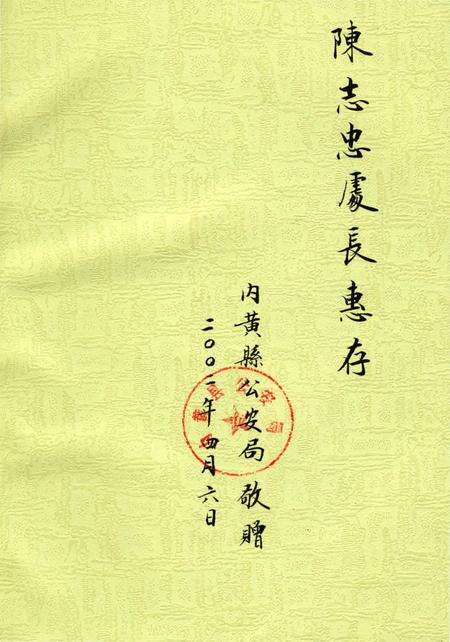 陳志忠處長惠存
內黃縣公安局敬贈
二〇〇一年四月六日